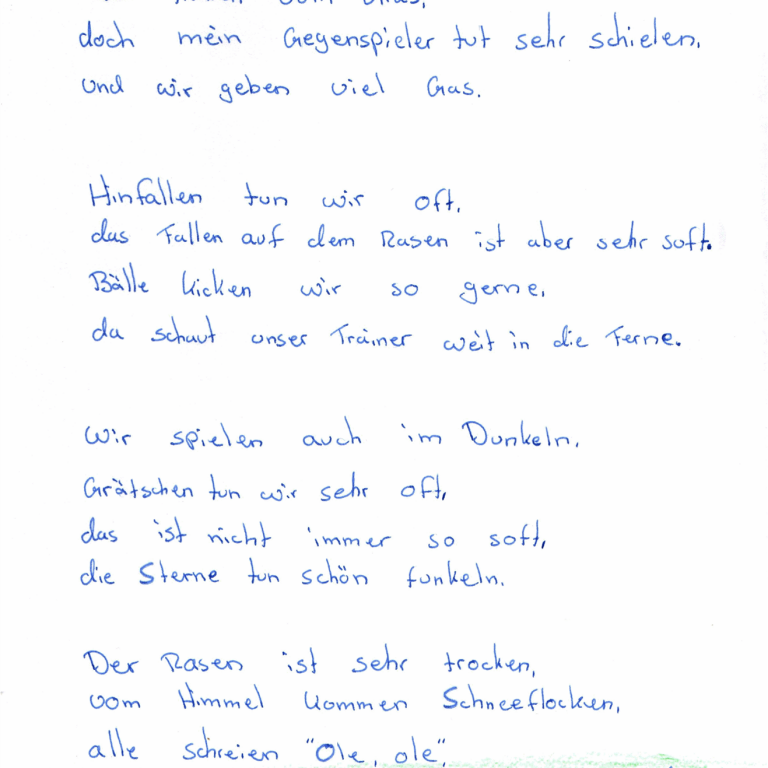 doch mein Gegenspieler tut sehr schielen,
und wir geben viel Gas.
Hinfallen tun wir oft,
das Fallen auf dem Rasen ist aber sehr soft.
Bälle kicken wir so gerne,
da schaut unser Trainer weit in die Ferne.
Wir spielen auch im Dunkeln,
Grätschen tun wir sehr oft,
das ist nicht immer so soft,
die Sterne tun schön funkeln.
Der Rasen ist sehr trocken,
vom Himmel kommen Schneeflocken,
alle schreien "Ole, ole",